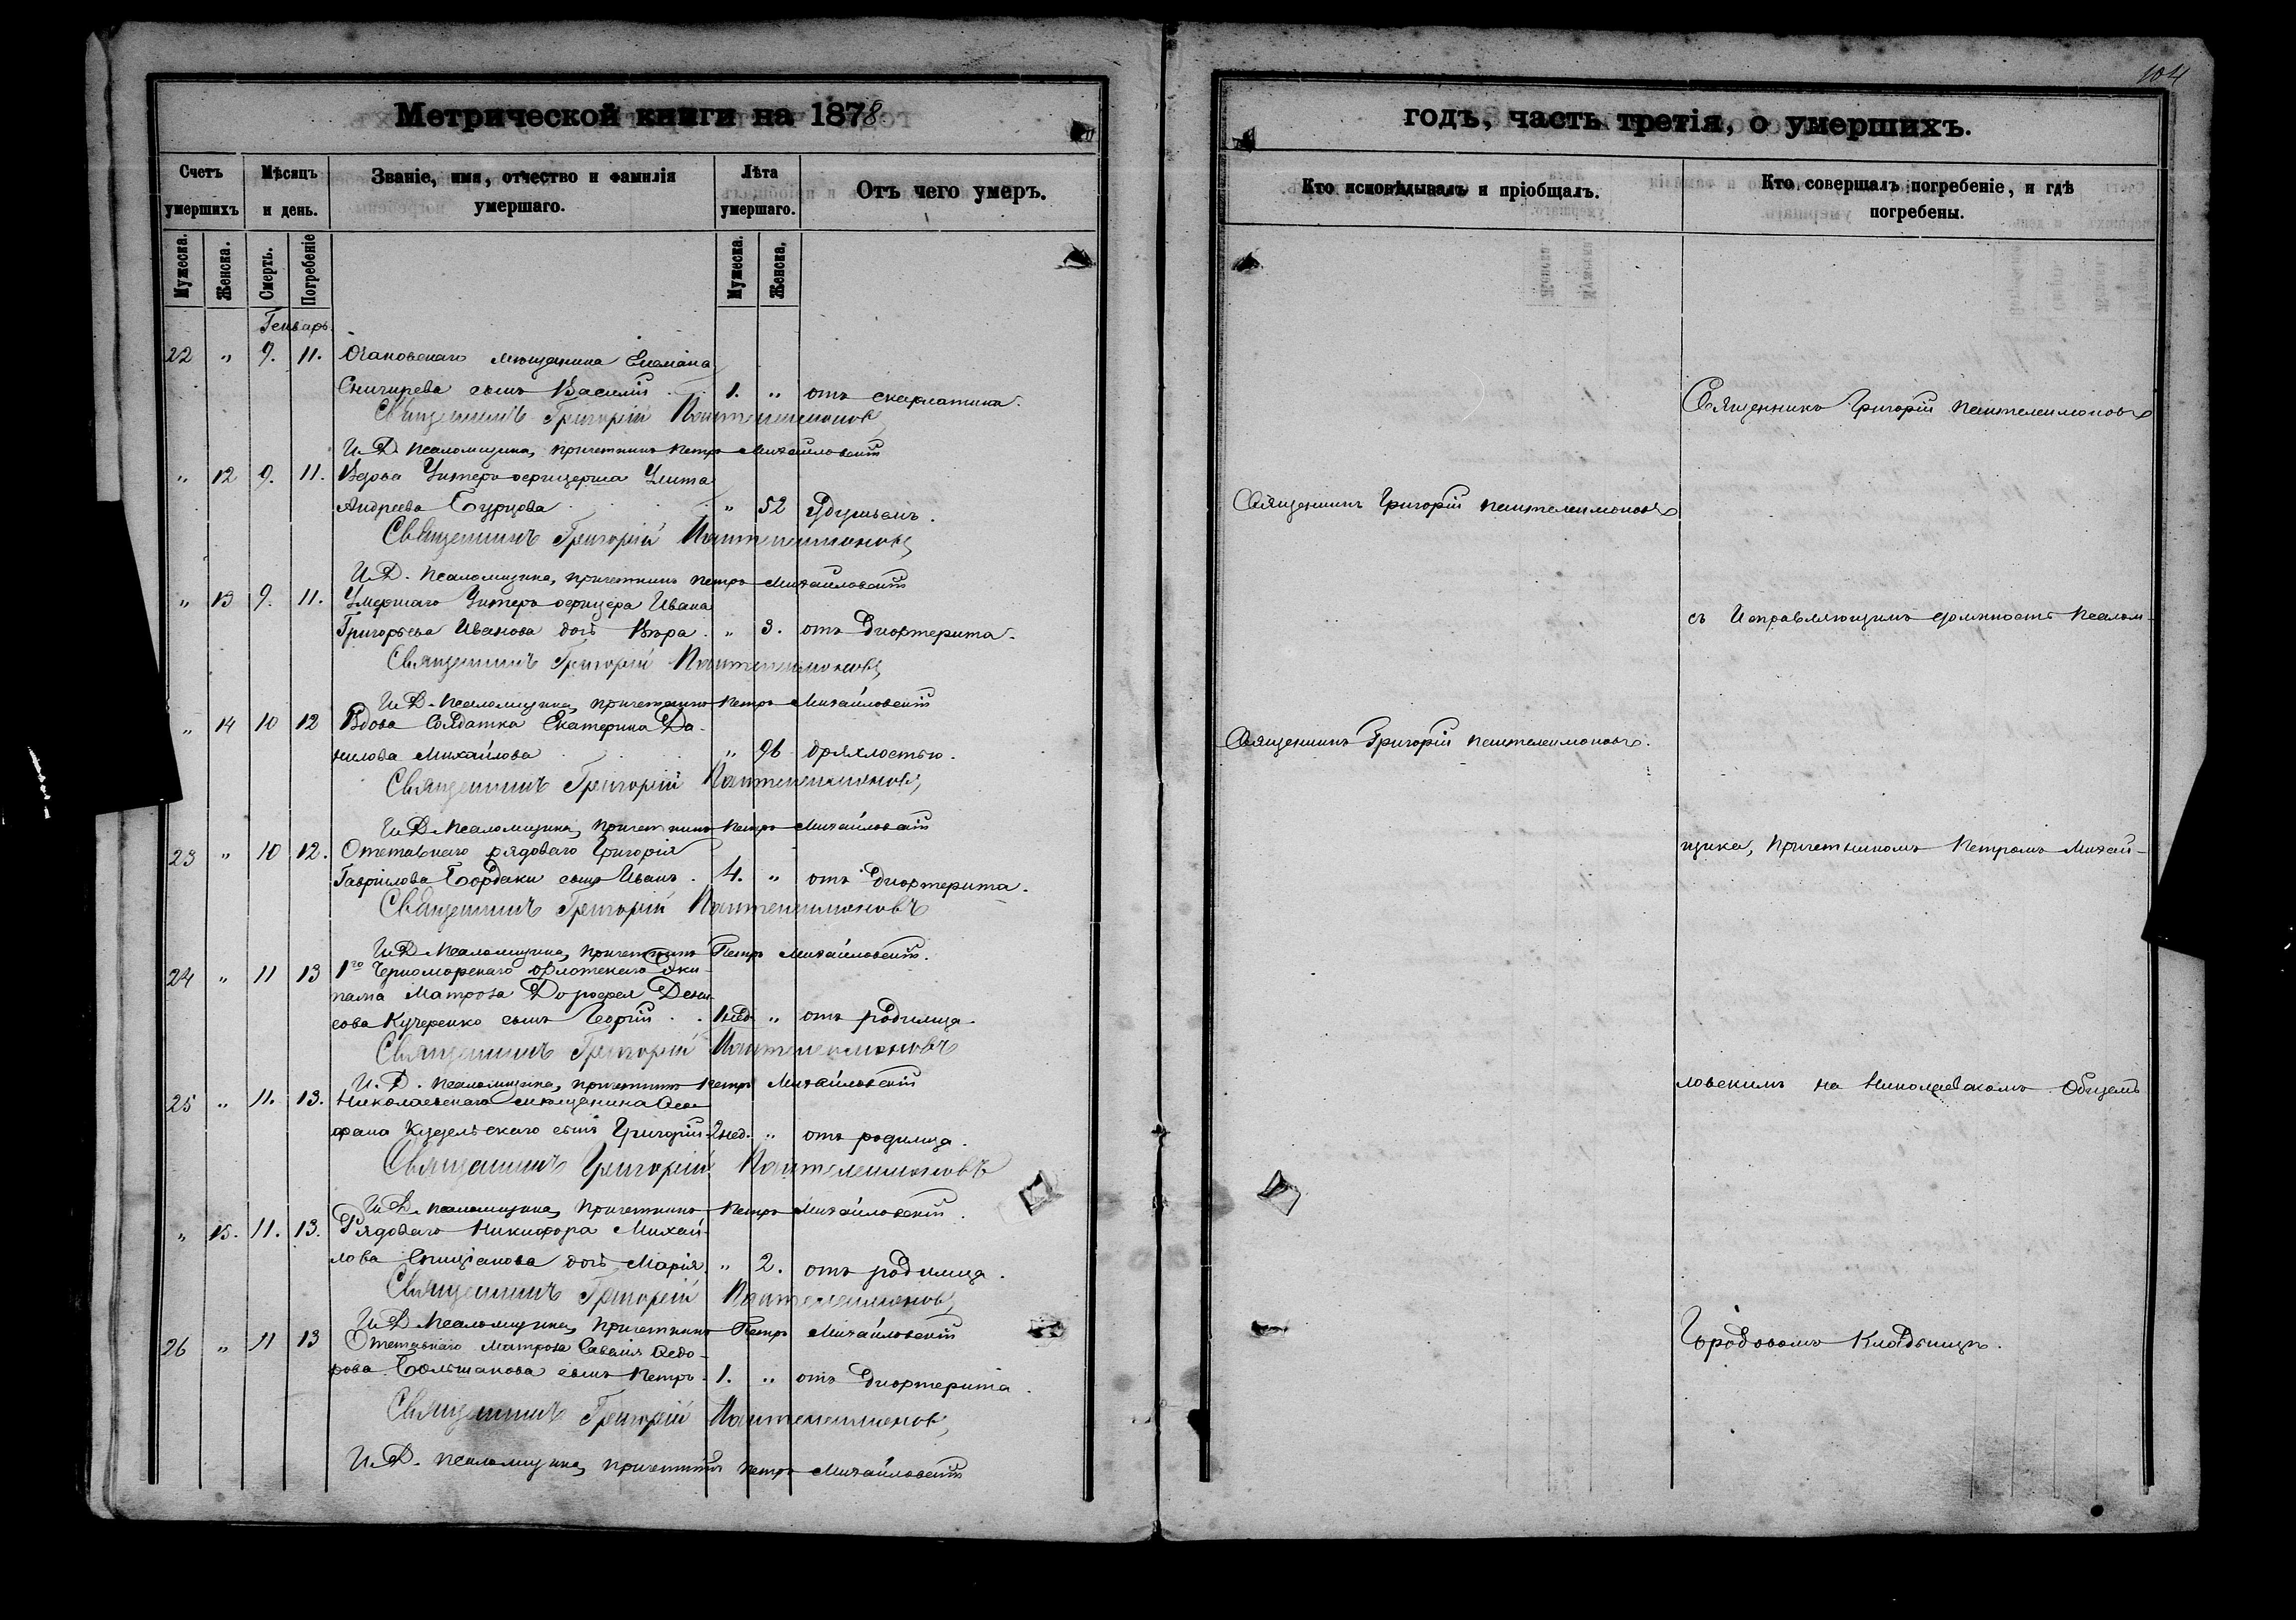 104
Метрической книги на 1878
годъ, часть третія, о умершихъ.
Счетъ умершихъ
Мѣсяцъ и день.
Званіе, имя, отчество и фамилія умершаго.
Лѣта умершаго.
Отъ чего умеръ.
Кто исповѣдывалъ и пріобщалъ.
Кто совершалъ погребеніе, и гдѣ погребены.
Мужеска. Женска. Смерть. Погребеніе Мужеска. Женска.
Генварь.
22 " 9. 11. Очаковскаго мѣщанина
сынъ Василій 1. " отъ скарлатина.
Священникъ Григорій Пантелеимоновъ
И. Д. Псаломщика, Причетникъ Петръ Михайловскій
" 12 9. 11. Вдова Унтеръ-офицерша
Андреева Бурцова " 52 Удушьемъ.
Священникъ Григорій Пантелеимоновъ
И. Д. Псаломщика, Причетникъ Петръ Михайловскій
" 13 9. 11. Умершаго Унтеръ-офицера Ивана
Григорьева Иванова дочь Вѣра. " 3. отъ Дифтерита.
Священникъ Григорій Пантелеимоновъ
И. Д. Псаломщика, Причетникъ Петръ Михайловскій
" 14 10 12 Вдова Солдатка Екатерина Да-
нилова Михайлова " 96 дряхлостью.
Священникъ Григорій Пантелеимоновъ
И. Д. Псаломщика, Причетникъ Петръ Михайловскій
23 " 10 12. Отставнаго рядоваго Григорія
Гаврилова Бордаки сынъ Иванъ. 4. " отъ Дифтерита.
Священникъ Григорій Пантелеимоновъ
И. Д. Псаломщика, Причетникъ Петръ Михайловскій.
24 " 11 13 1го Черноморскаго Флотскаго Эки-
пажа Матроза Дорофея Дени-
сова Кучеренко сынъ Георгій 1нед. " отъ родимца.
Священникъ Григорій Пантелеимоновъ
И. Д. Псаломщика, Причетникъ Петръ Михайловскій
25 " 11. 13. Николаевскаго мѣщанина Ѳео-
фана сынъ Григорій 2нед. " отъ родимца.
Священникъ Григорій Пантелеимоновъ
И. Д. Псаломщика, Причетникъ Петръ Михайловскій.
" 15. 11. 13. Рядоваго Никифора Михай-
лова дочь Марія. " 2. отъ родимца.
Священникъ Григорій Пантелеимоновъ
И. Д. Псаломщика, Причетникъ Петръ Михайловскій
26 " 11 13 Отставнаго Матроза Савелія Ѳедо-
рова Большакова сынъ Петръ. 1. " отъ Дифтерита.
Священникъ Григорій Пантелеимоновъ
И. Д. Псаломщика, Причетникъ Петръ Михайловскій
Священникъ Григорій Пантелеимоновъ
Священникъ Григорій Пантелеимоновъ.
Священникъ Григорій Пантелеимоновъ
съ Исправляющимъ должность Псалом-
щика, Причетникомъ Петромъ Михай-
ловскимъ на Николаевскомъ Общемъ
Городовомъ Кладбищѣ.